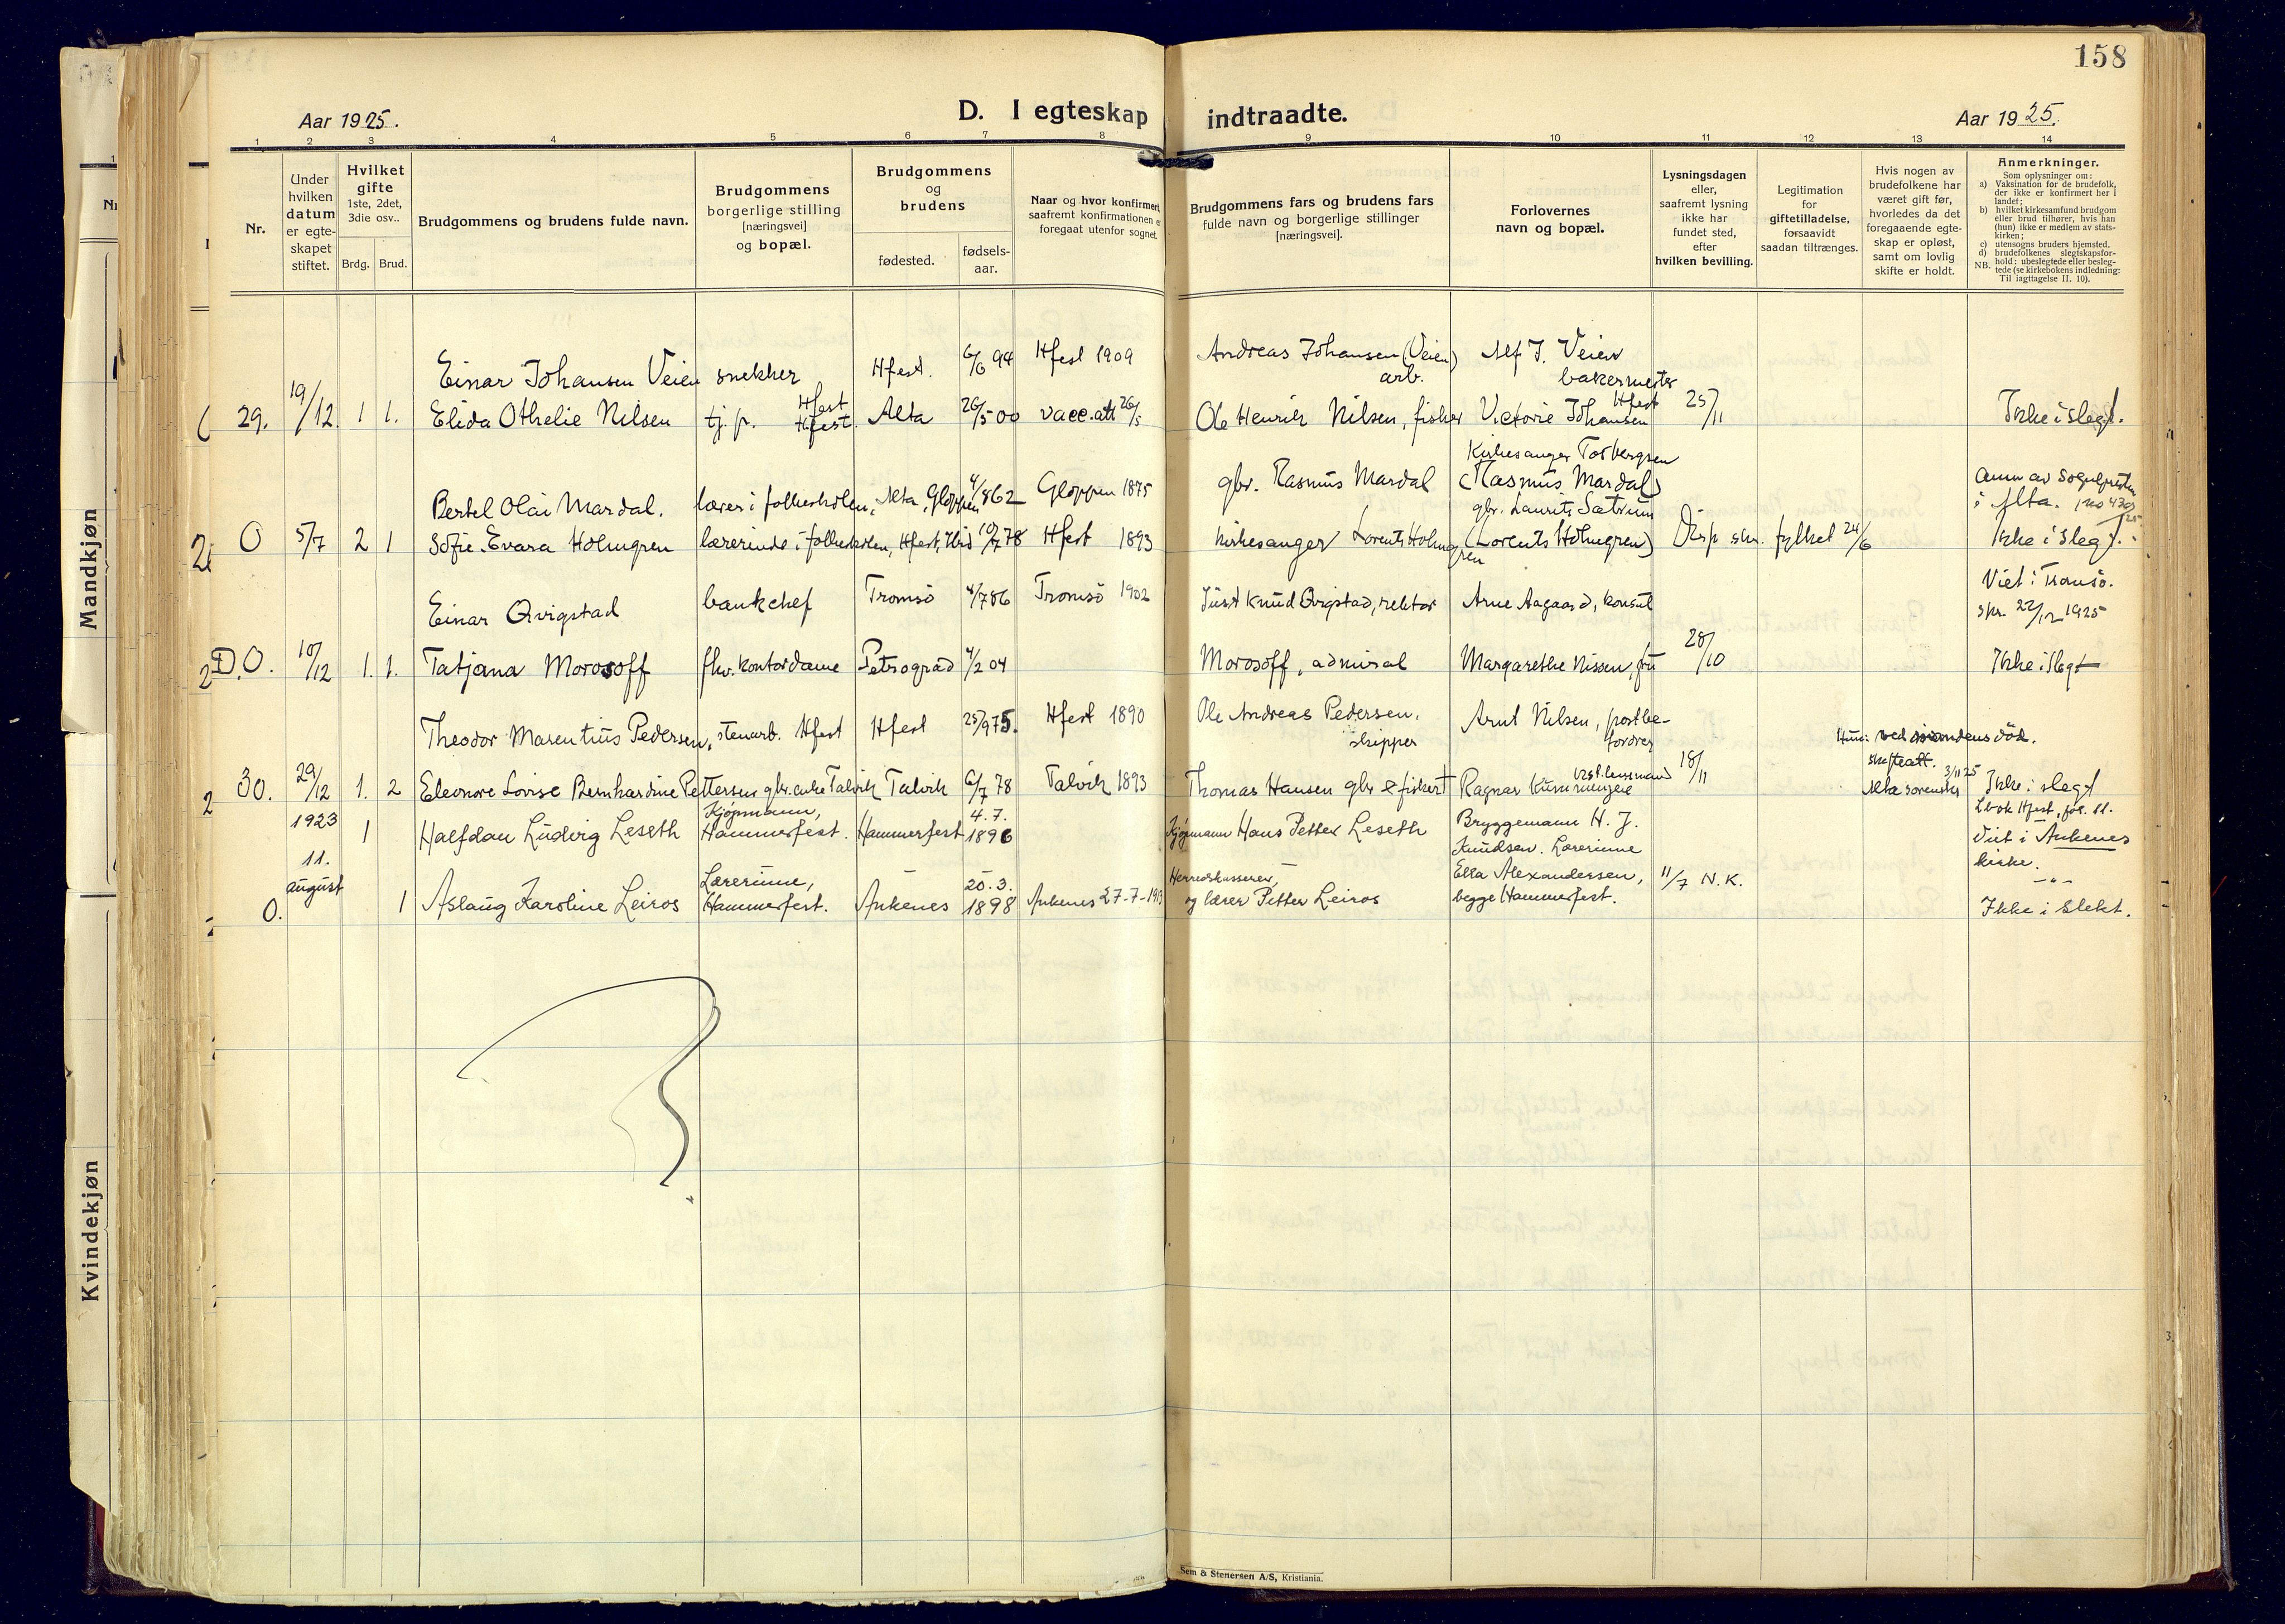 158
Aar 1925.
D. I egteskap indtraadte.
Aar 1925.
1 2 3 4 5 6 7 8 9 10 11 12 13 14
Nr.
Under hvilken datum er egte- skapet stiftet.
Hvilket gifte 1ste, 2det, 3die osv..
Brdg. Brud.
Brudgommens og brudens fulde navn.
Brudgommens borgerlige stilling [næringsvei] og bopæl.
Brudgommens og brudens
fødested.
fødsels- aar.
Naar og hvor konfirmert, saafremt konfirmationen er foregaat utenfor sognet.
Brudgommens fars og brudens fars fulde navn og borgerlige stillinger [næringsvei].
Forlovernes navn og bopæl.
Lysningsdagen eller, saafremt lysning ikke har fundet sted, efter hvilken bevilling.
Legitimation for giftetilladelse, forsaavidt saadan tiltrænges.
Hvis nogen av brudefolkene har været gift før, hvorledes da det foregaaende egte- skap er opløst, samt om lovlig skifte er holdt.
Anmerkninger.
Som oplysninger om:
a) Vaksination for de brudefolk, der ikke er konfirmert her i landet;
b) hvilket kirkesamfund brudgom eller brud tilhører, hvis han (hun) ikke er medlem av stats- kirken;
c) utensogns bruders hjemsted.
d) brudefolkenes slegtskapsfor- hold: ubeslegtede eller besleg- tede (se kirkebokens indledning: Til iagttagelse II. 10).
NB.
Mandkjøn
Kvindekjøn
Einar Johansen Veien snekker Hfest Hfest. 6/6 94 Hfest 1909 Andreas Johansen (Veien) arb. Alf J. Veien bakermester Hfest
29. 19/12. 1 1. Elida Othelie Nilsen tj. p. Hfest. Alta 26/5 00 vacc. att 26/5 Ole Henrik Nilsen, fisker Victorie Johansen 25/11 Ikke i slegt.
Kirkesanger Torbergsen
Bertel Olai Mardal. lærer i folkeskolen, Alta, Gloppen 4/8 62 Gloppen 1875 gbr. Rasmus Mardal (Rasmus Mardal) gbr. Laurits Sætrum Anm av Sognepresten i Alta.
O 5/7 2 1 Sofie Evara Holmgren lærerinde i folkeskolen, Hfest, 10/7 78 Hfest 1893 kirkesanger Lorents Holmgren (Lorents Holmgren) Disp skr. fylket 24/6 Ikke i slegt.
Einar Qvigstad bankchef Tromsö 4/7 86 Tromsö 1902 Just Knud Qvigstad, rektor Arne Aagaard, konsul Viet i Tromsö. skr. 22/12 1925
D.O. 10/12 1. 1. Tatjana Morosoff fhv. kontordame Petrograd 4/2 04 Morosoff, admiral Margarethe Nissen, fru 28/10 Ikke i slegt
Theodor Marentius Pedersen, stenarb. Hfest Hfest 25/9 75. Hfest 1890 Ole Andreas Pedersen, skipper Arnt Nilsen, postbe- fordrer Hun: ved mandens död. skifteatt. 3/11 25 Alta sorenskr
30. 29/12 1. 2 Eleonore Lovise Bernhardine Pettersen gbr. enke Talvik Talvik 6/7 78 Talvik 1893 Thomas Hansen gbr & fisker Ragnar 18/11 Ikke i slegt
1923 1 Halfdan Ludvig Leseth Kjøpmann, Hammerfest. Hammerfest 4.7. 1896 Kjøpmann Hans Petter Leseth Bryggemann H. J. Knudsen. Lærerinne Lbok Hfest, fol. 11. Viet i Ankenes kirke.
11. august
O. 1 Aslaug Karoline Leiros Lærerinne, Hammerfest. Ankenes 20.3. 1898 Ankenes 27-7-1913 Herredskasserer, og lærer Petter Leiros Ella Alexandersen, begge Hammerfest. 11/7 N.K. -"- Ikke i slekt.
Sem & Stenersen A/S, Kristiania.